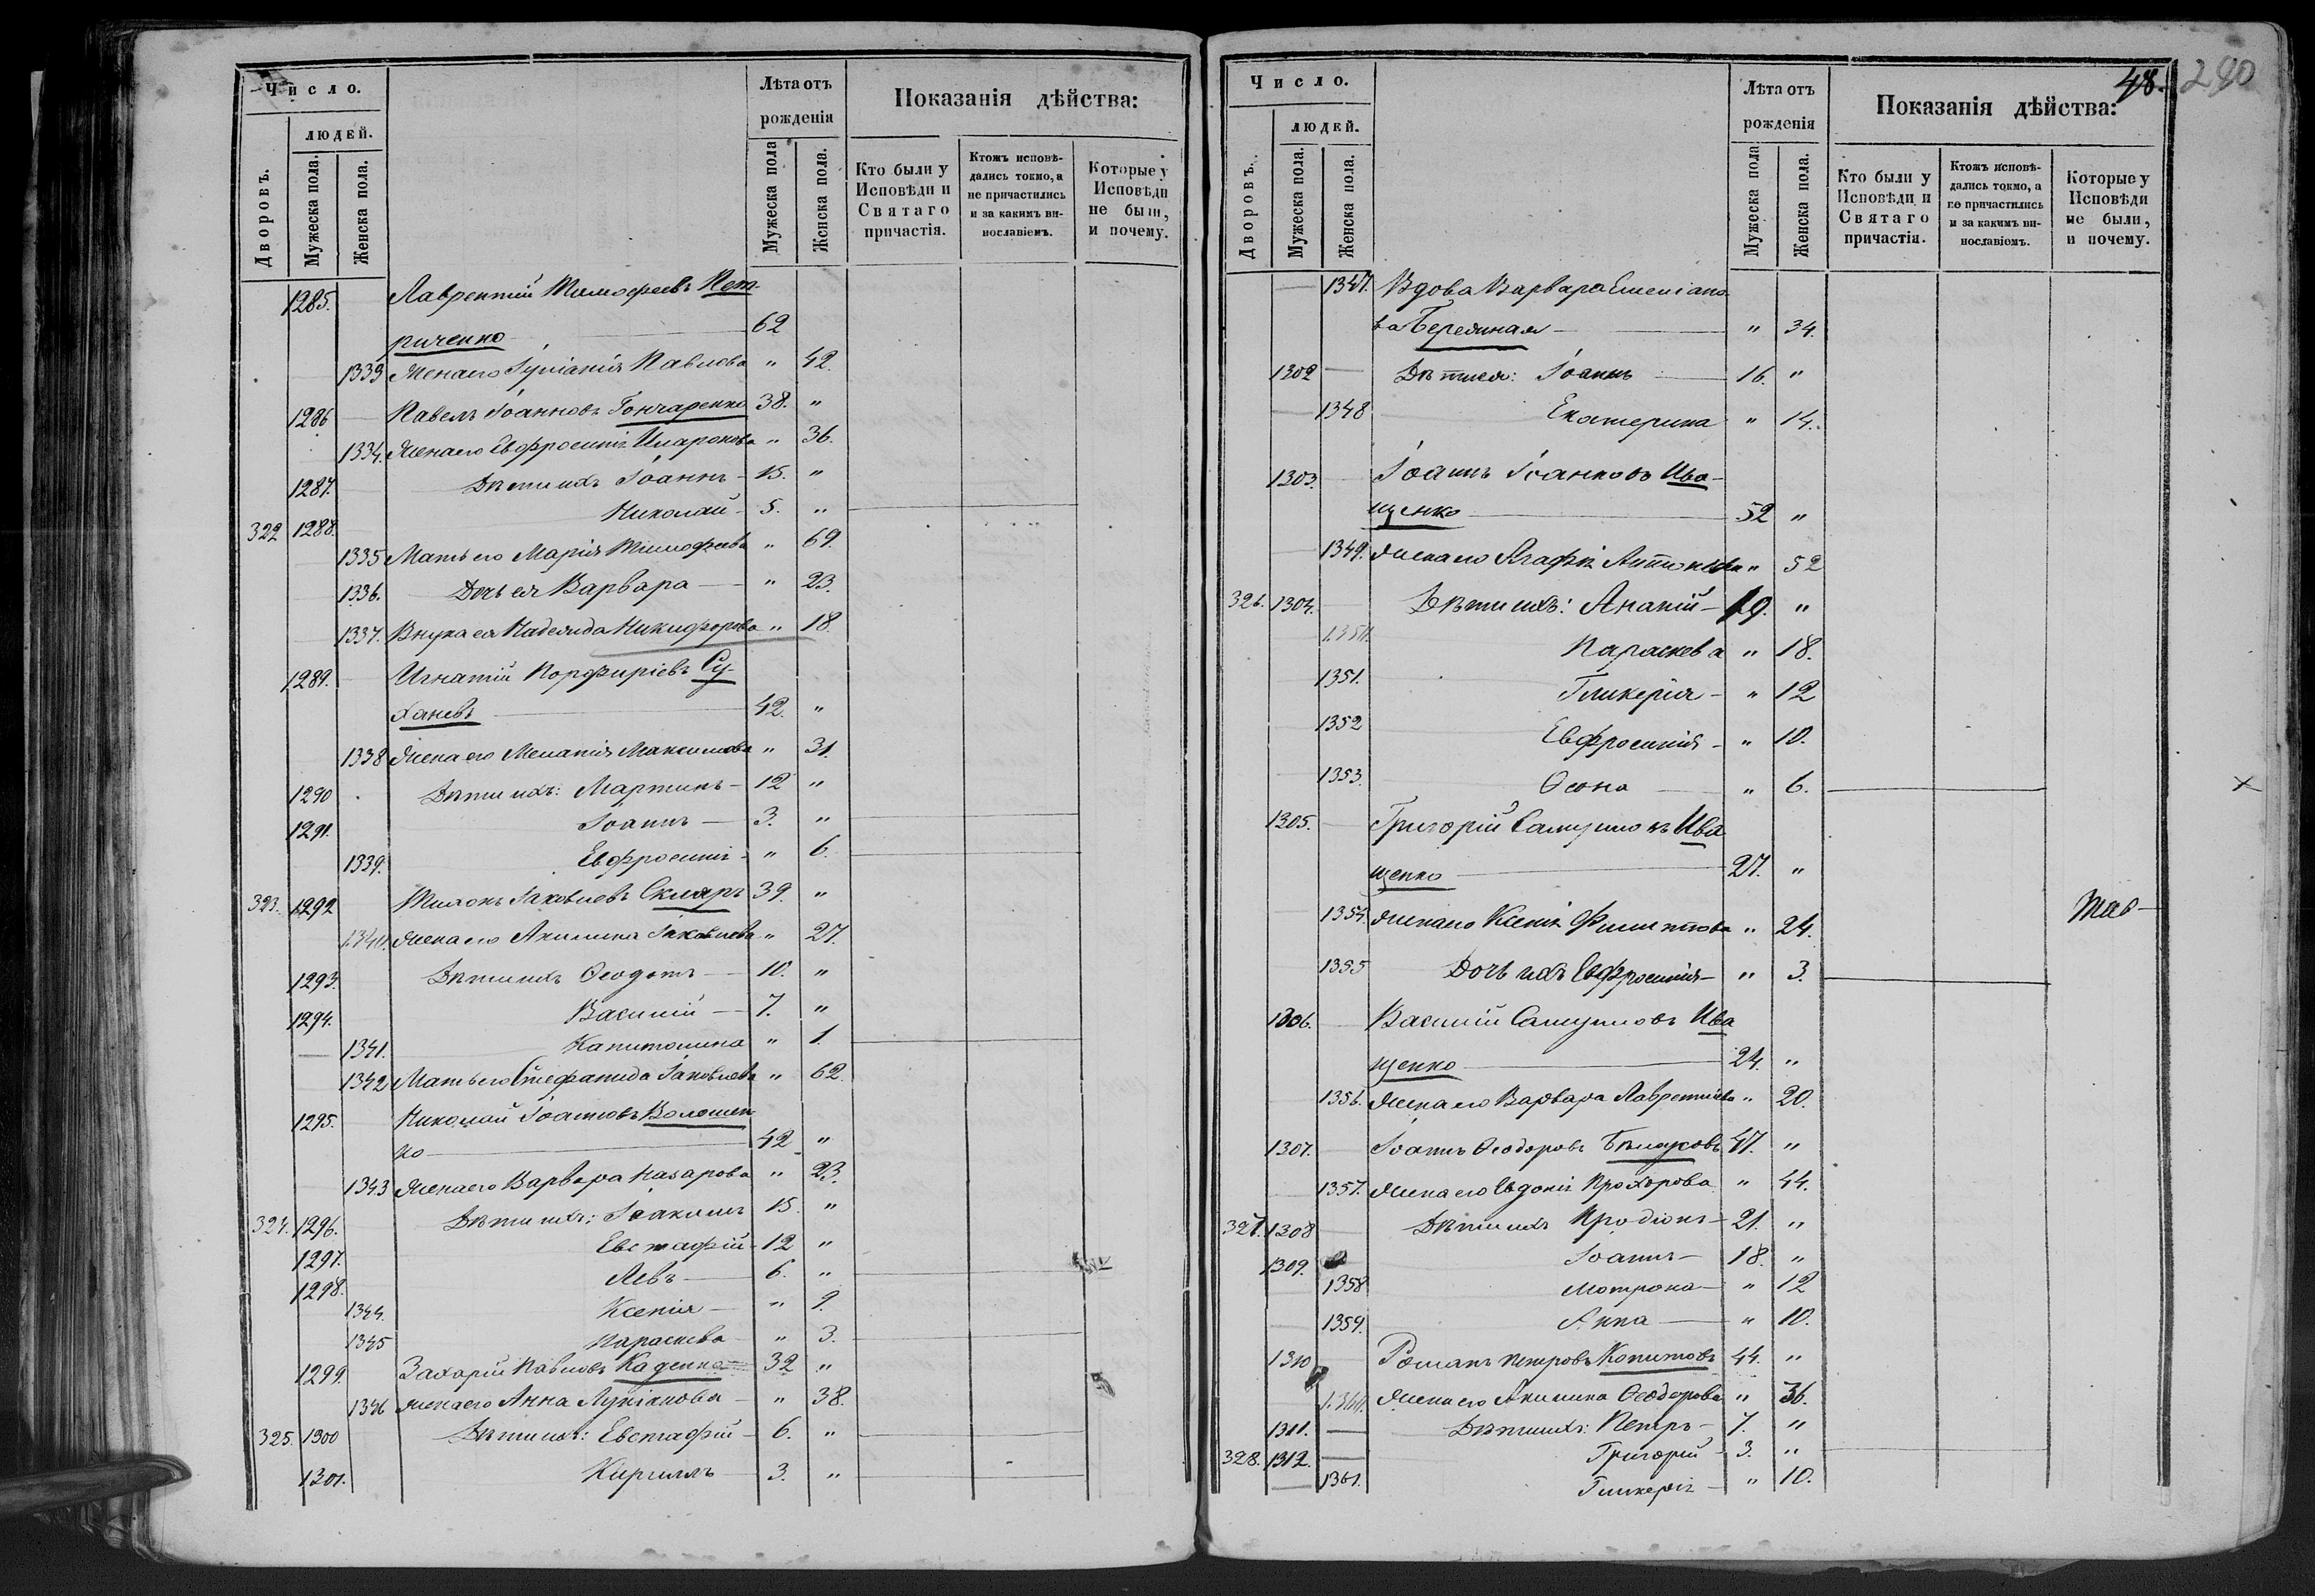 Число.
людей.
Дворовъ.
Мужеска пола.
Женска пола.
Лѣта отъ
рожденія
Мужеска пола
Женска пола.
Показанія дѣйства:
Кто были у
Исповѣди и
Святаго
причастія.
Ктожъ исповѣ-
дались токмо, а
не причастились
и за какимъ ви-
нославіемъ.
Которые у
Исповѣди
не были,
и почему.
1285. Лаврентій Тимофеевъ Пет-
риченко 62
1333 Жена его Іуліанія Павлова " 42.
1286 Павелъ Іоанновъ Гончаренко 38. "
1334. Жена его Евфросинія Иларіонова " 36.
1287. Дѣти ихъ Іоаннъ 15. "
322 1288. Николай 5. "
1335 Мать его Марія Тимофеева " 69.
1336. Дочь ея Варвара " 23.
1337. Внука ея Надежда Никифорова " 18.
1289. Игнатій Порфиріевъ Су-
ханевъ 42. "
1338 Жена его Меланія Максимова " 31.
1290 Дѣти ихъ: Мартинъ 12 "
1291. Іоаннъ 3. "
1339. Евфросинія " 6.
323. 1292 Тимонъ Іаковлевъ Скляръ 39. "
1340. Жена его Акилина Іаковлева " 27.
1293. Дѣти ихъ Ѳеодотъ 10. "
1294. Василій 7. "
1341. Капитолина " 1.
1342 Мать его Стефанида Іаковлева " 62.
1295. Николай Іоанновъ Волошен
ко 42 "
1343 Жена его Варвара Назарова " 23.
324. 1296. Дѣти ихъ: Іоакимъ 15. "
1297. Евстафій 12 "
1298. Левъ 6. "
1344. Ксенія " 9.
1345 Параскева " 3.
1299. Захарій Павловъ Каденко 32 "
1346 Жена его Анна Лукіанова " 38.
325. 1300 Дѣти ихъ: Евстафій 6. "
1301. Кириллъ 3. "
48. 280
Число.
людей.
Дворовъ.
Мужеска пола.
Женска пола.
Лѣта отъ
рожденія
Мужеска пола
Женска пола.
Показанія дѣйства:
Кто были у
Исповѣди и
Святаго
причастія.
Ктожъ исповѣ-
дались токмо, а
не причастились
и за какимъ ви-
нославіемъ.
Которые у
Исповѣди
не были,
и почему.
1347. Вдова Варвара Емеліано
ва Бережная " 34.
1302 Дѣти ея: Іоаннъ 16. "
1348 Екатерина " 14.
1303. Іоаннъ Іоанновъ Ива-
щенко 52 "
1349. Жена его Агафія Антонова " 52
326. 1304. Дѣти ихъ: Ананій 19. "
1350. Параскева " 18.
1351. Гликерія " 12
1352 Евфросинія " 10.
1353. Ѳеона " 6.
1305. Григорій Самуиловъ Ива
щенко 27. "
1354. Жена его Ксенія Филиппова " 24.
1355 Дочь ихъ Евфросинія " 3.
1306. Василій Самуиловъ Ива
щенко 24. "
1356. Жена его Варвара Лаврентіева " 20.
1307. Іоаннъ Ѳеодоровъ Бѣлаховъ 47. "
1357. Жена его Евдокія Прохорова " 44.
327. 1308 Дѣти ихъ Иродіонъ 21. "
1309. Іоаннъ 18. "
1358 Мотрона " 12
1359. Анна " 10.
1310 Романъ Петровъ Копитовъ 44. "
1360. Жена его Акилина Ѳеодорова " 36.
1311. Дѣти ихъ: Петръ 7. "
328. 1312. Григорій 3. "
1361. Гликерія " 10.